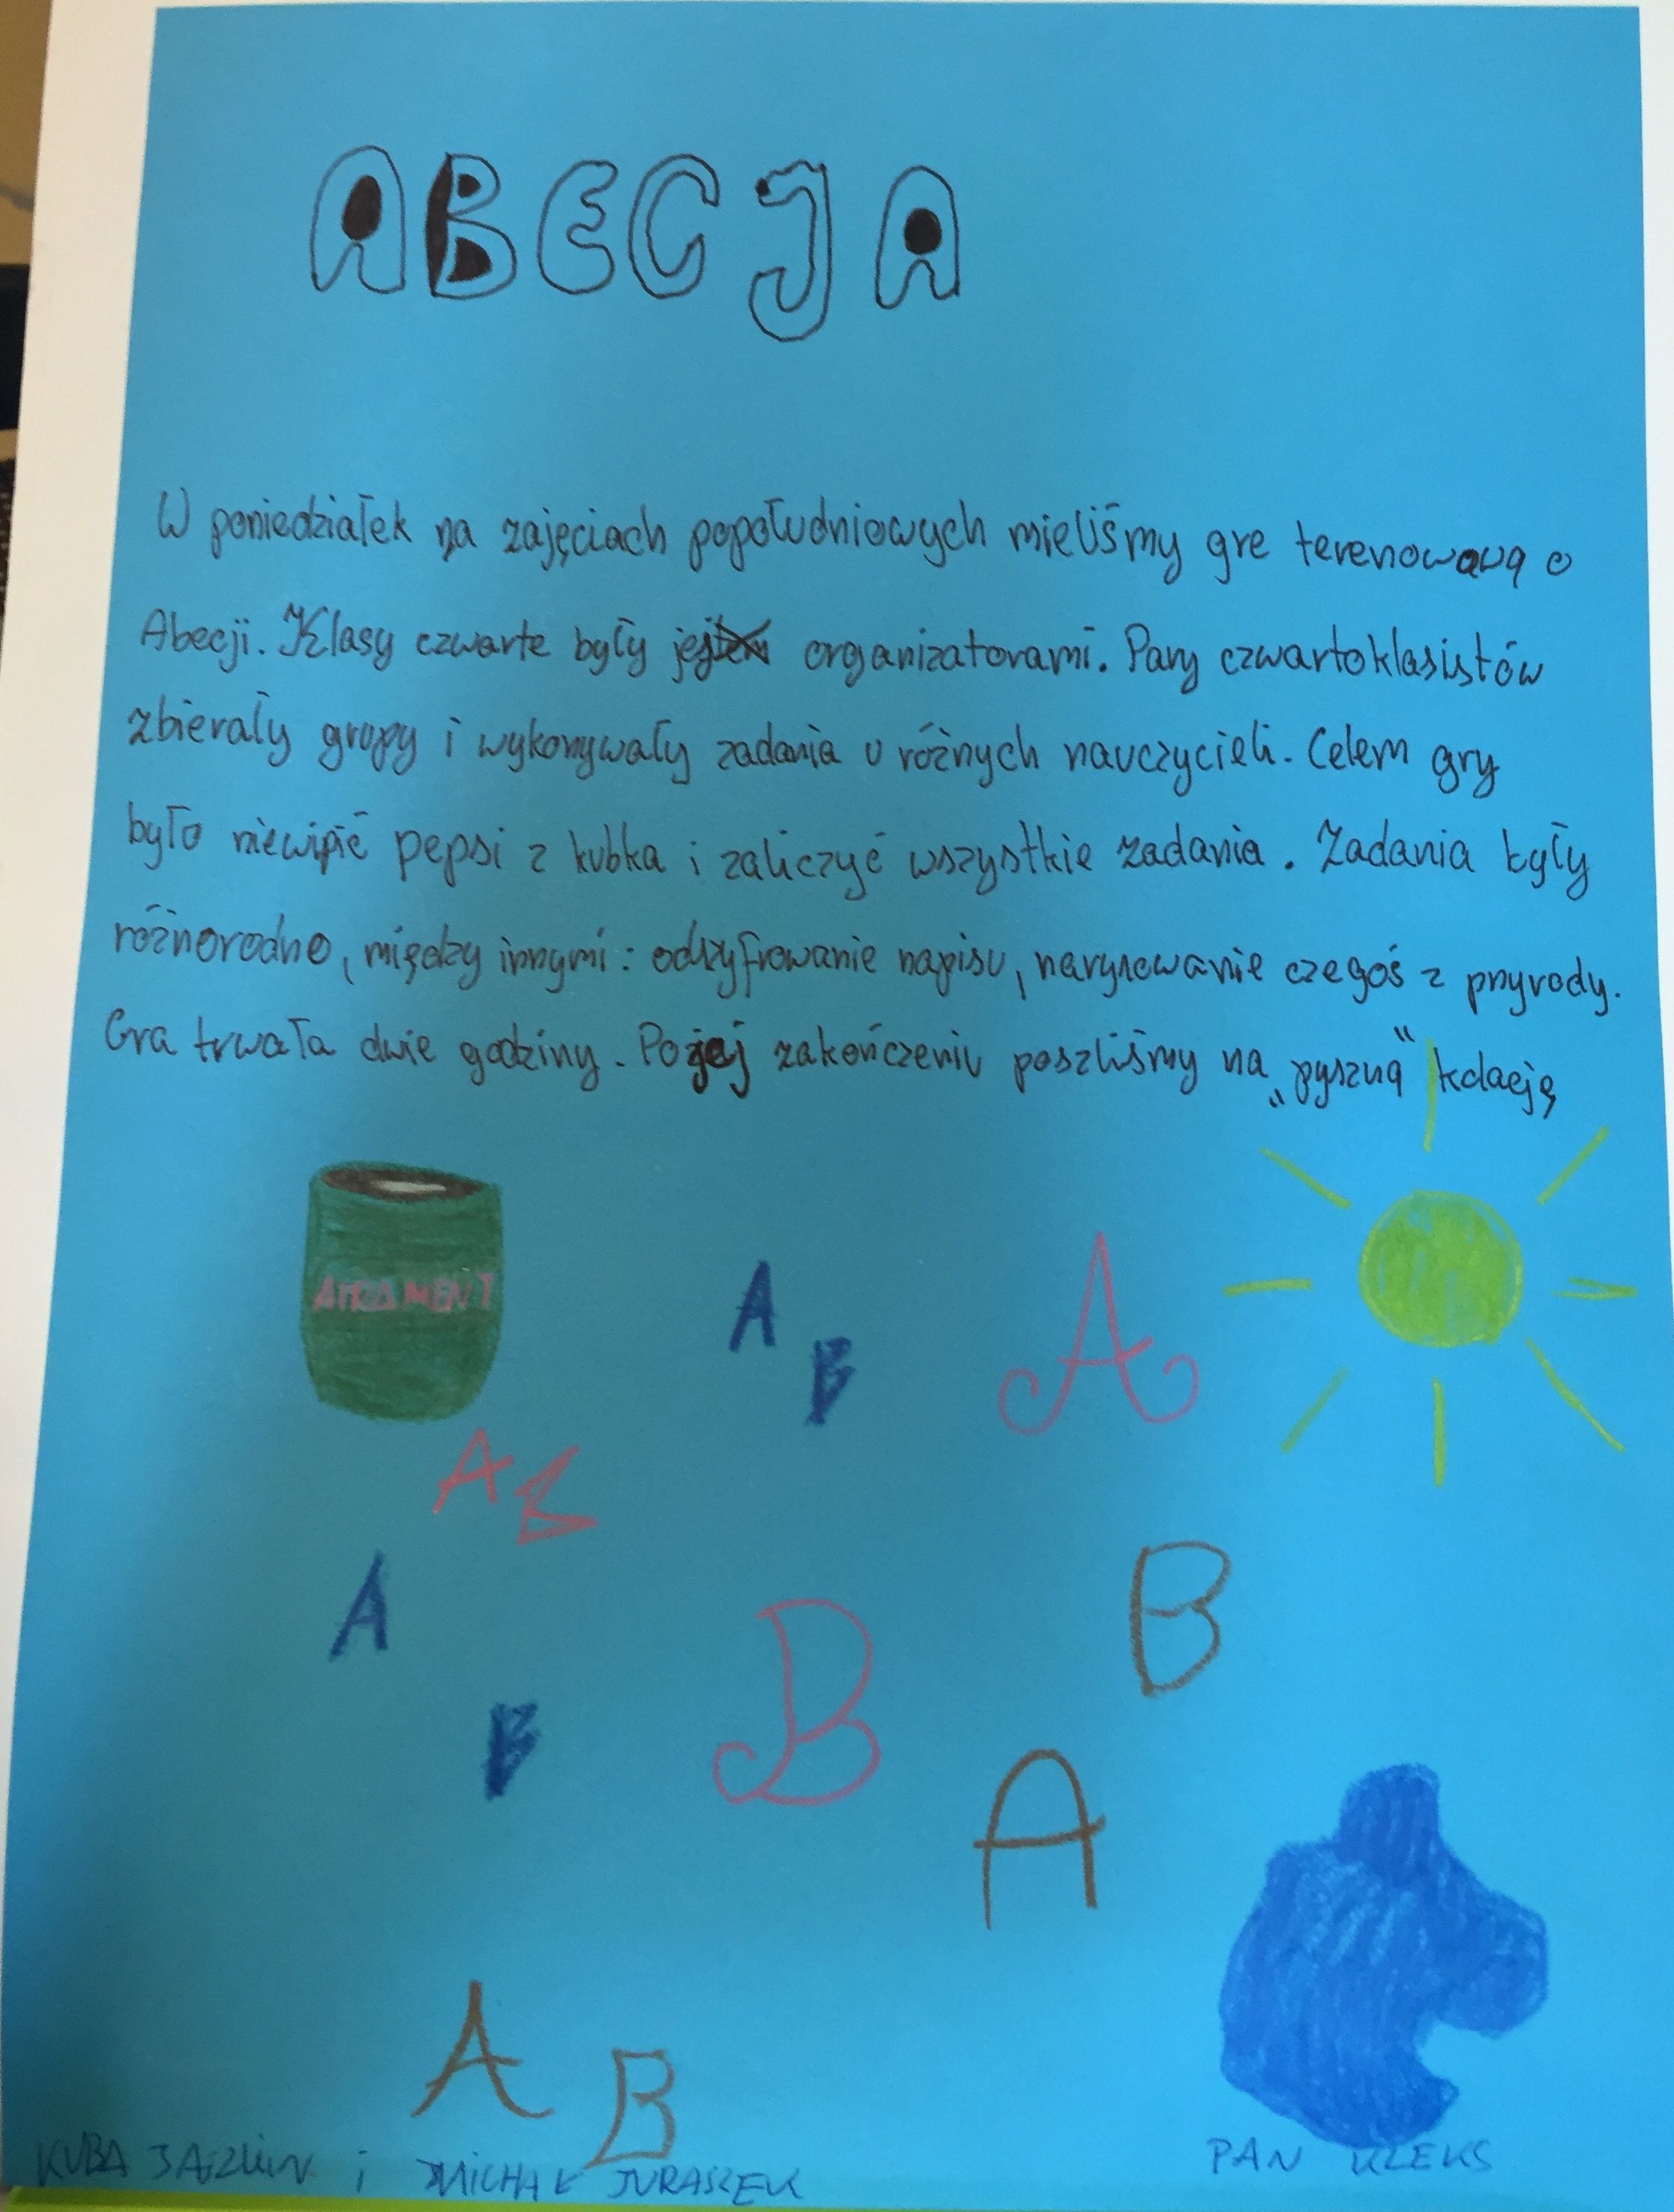 ABECJA
W poniedziałek na zajęciach popołudniowych mieliśmy gre terenową o
Abecji. Klasy czwarte były organizatorami. Pary czwartoklasistów
zbierały grupy i wykonywały zadania u różnych nauczycieli. Celem gry
było niewipić pepsi z kubka i zaliczyć wszystkie zadania. Zadania były
różnorodne, między innymi: odszyfrowanie napisu, narysowanie czegoś z przyrody.
Gra trwała dwie godziny. Po jej zakończeniu poszliśmy na „pyszną" kolację
ATRAMENT
A A
B
A B
A B
B B
A
A
B
KUBA i MICHAŁ JURASZEK PAN KLEKS